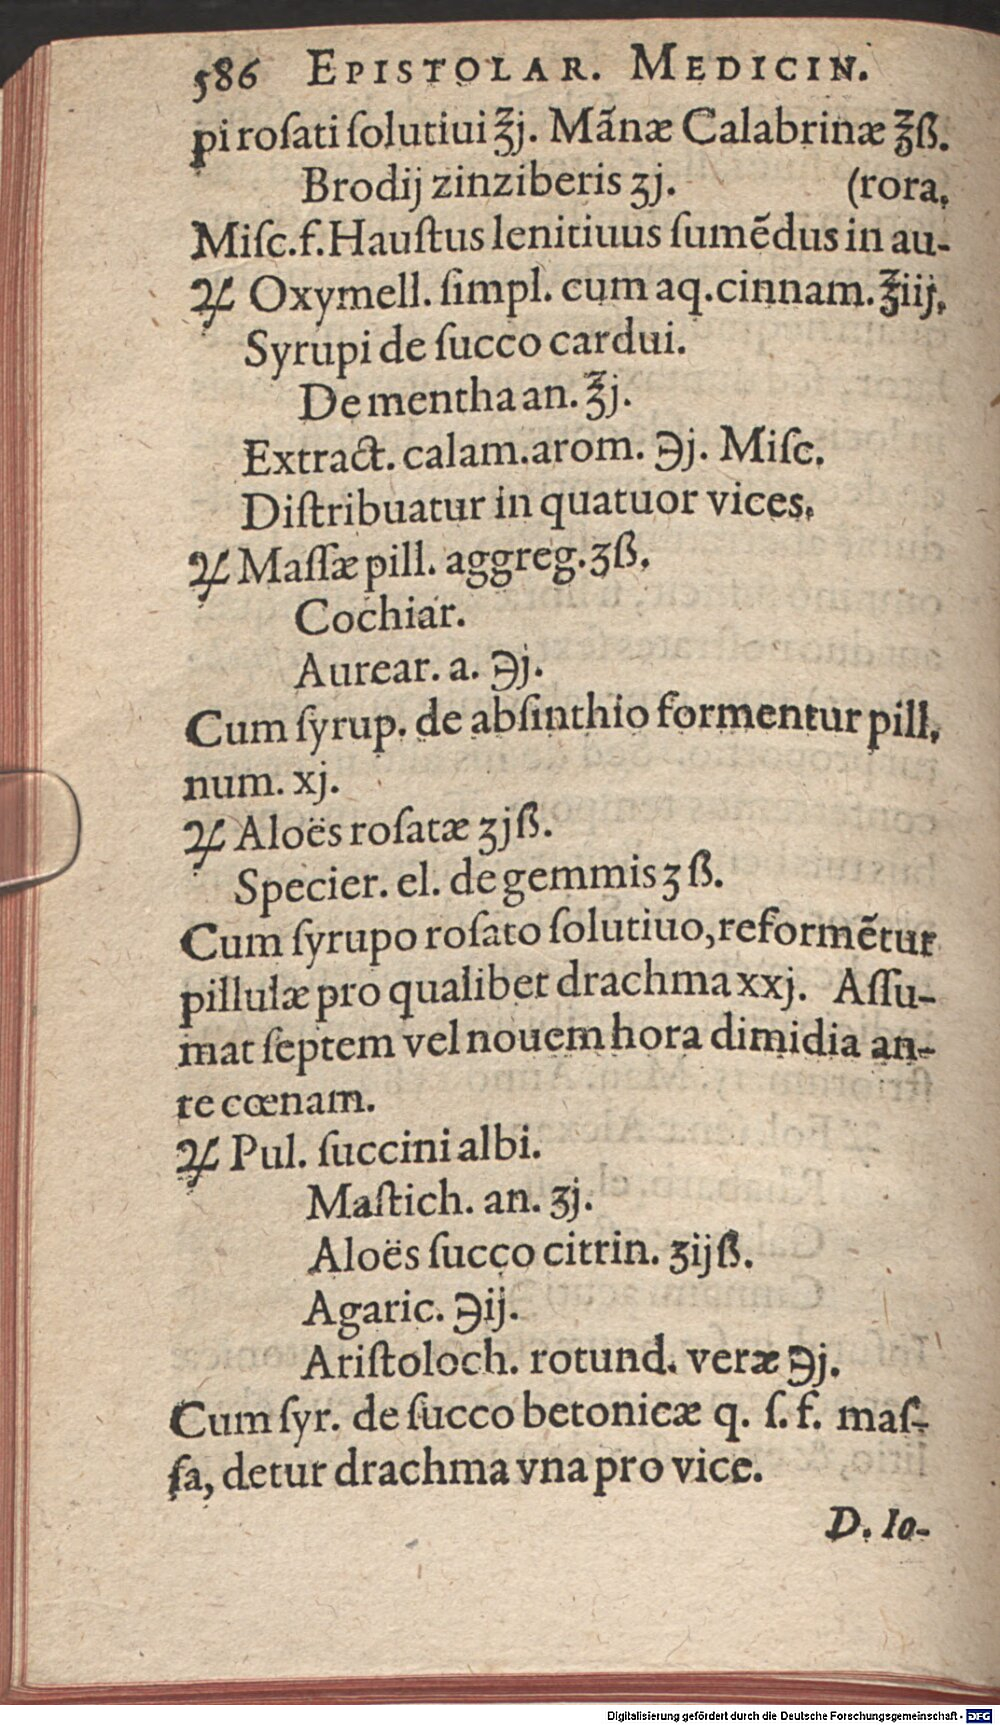 586 EPISTOLAR. MEDICIN.
pi roſati ſolutiui ℥j. Mãnæ Calabrinæ ℥ß.
Brodij zinziberis ʒj. (rora.
Miſc.f.Hauſtus lenitiuus ſumẽdus in au-
♃ Oxymell. ſimpl. cum aq.cinnam.℥iij.
Syrupi de ſucco cardui.
De mentha an. ℥j.
Extract. calam.arom. ℈j. Miſc.
Diſtribuatur in quatuor vices.
♃ Maſſæ pill. aggreg.ʒß.
Cochiar.
Aurear. a. ℈j.
Cum ſyrup. de abſinthio formentur pill.
num. xj.
♃ Aloës roſatæ ʒjß.
Specier. el. de gemmis ʒß.
Cum ſyrupo roſato ſolutiuo,reformẽtur
pillulæ pro qualibet drachma xxj. Aſſu-
mat ſeptem vel nouem hora dimidia an-
te cœnam.
♃ Pul. ſuccini albi.
Maſtich. an. ʒj.
Aloës ſucco citrin. ʒijß.
Agaric. ℈ij.
Ariſtoloch. rotund. veræ ℈j.
Cum ſyr. de ſucco betonicæ q. ſ. f. maſ-
ſa, detur drachma vna pro vice.
D. Io-
Digitalisierung gefördert durch die Deutsche Forschungsgemeinschaft - DFG